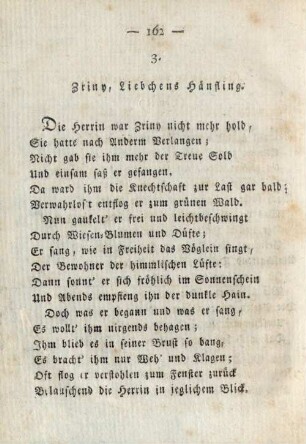 — 162 —
3.
Zriny, Liebchens Hänfling.
Die Herrin war Zriny nicht mehr hold,
Sie hatte nach Anderm Verlangen;
Nicht gab sie ihm mehr der Treue Sold
Und einsam saß er gefangen.
Da ward ihm die Knechtschaft zur Last gar bald;
Verwahrlos't entflog er zum grünen Wald.
Nun gaukelt' er frei und leichtbeschwingt
Durch Wiesen-Blumen und Düfte;
Er sang, wie in Freiheit das Vöglein singt,
Der Bewohner der himmlischen Lüfte:
Dann sonnt' er sich fröhlich im Sonnenschein
Und Abends empfieng ihn der dunkle Hain.
Doch was er begann und was er sang,
Es wollt' ihm nirgends behagen;
Ihm blieb es in seiner Brust so bang,
Es bracht' ihm nur Weh' und Klagen;
Oft flog er verstohlen zum Fenster zurück
Belauschend die Herrin in jeglichem Blick.